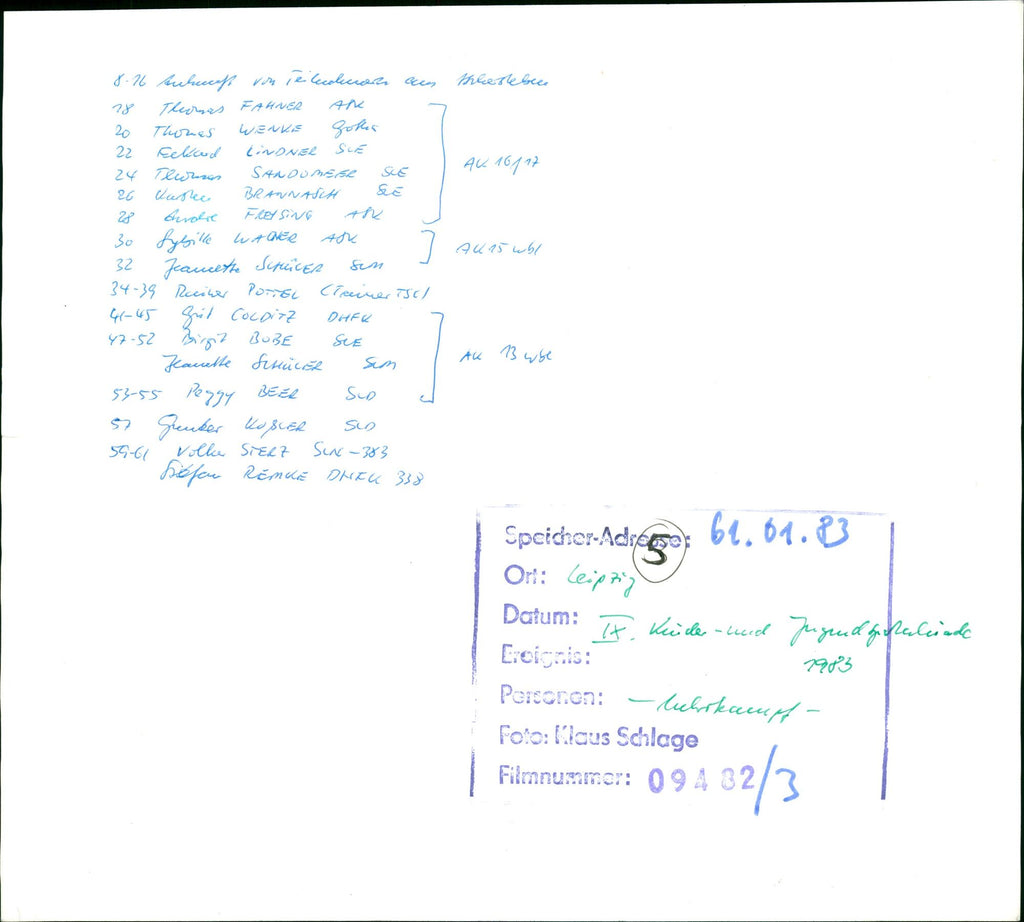 8-16 Ankunft von Teilnehmern aus
18 Thomas FAHNER ASK
20 Thomas WENKE Gotha
22 Eckhard LINDNER SLE
24 Thomas SANDOMEER SLE
26 BRANNASCH SLE
28 Andre FREISING ASK
AK 16/17
30 Sybille WAGNER ASK
32 Jeanette SCHÜLER SLM
AK 15 wbl
34-39 Rainer POTTEL (Trainer TSC)
41-45 Grit COLDITZ DHFK
47-52 Birgit BUBE SLE
Jeanette SCHÜLER SLM
53-55 Peggy BEER SLD
AK 13 wbl
57 Gunter KOßLER SLD
59-61 Volker STERZ SLN-383
Stefan REMKE DHFK 338
Speicher-Adresse: 61.01.83
5
Ort: Leipzig
Datum: IX. Kinder- und Jugendspartakiade
Ereignis: 1983
Personen: - Mehrkampf -
Foto: Klaus Schlage
Filmnummer: 09482/3